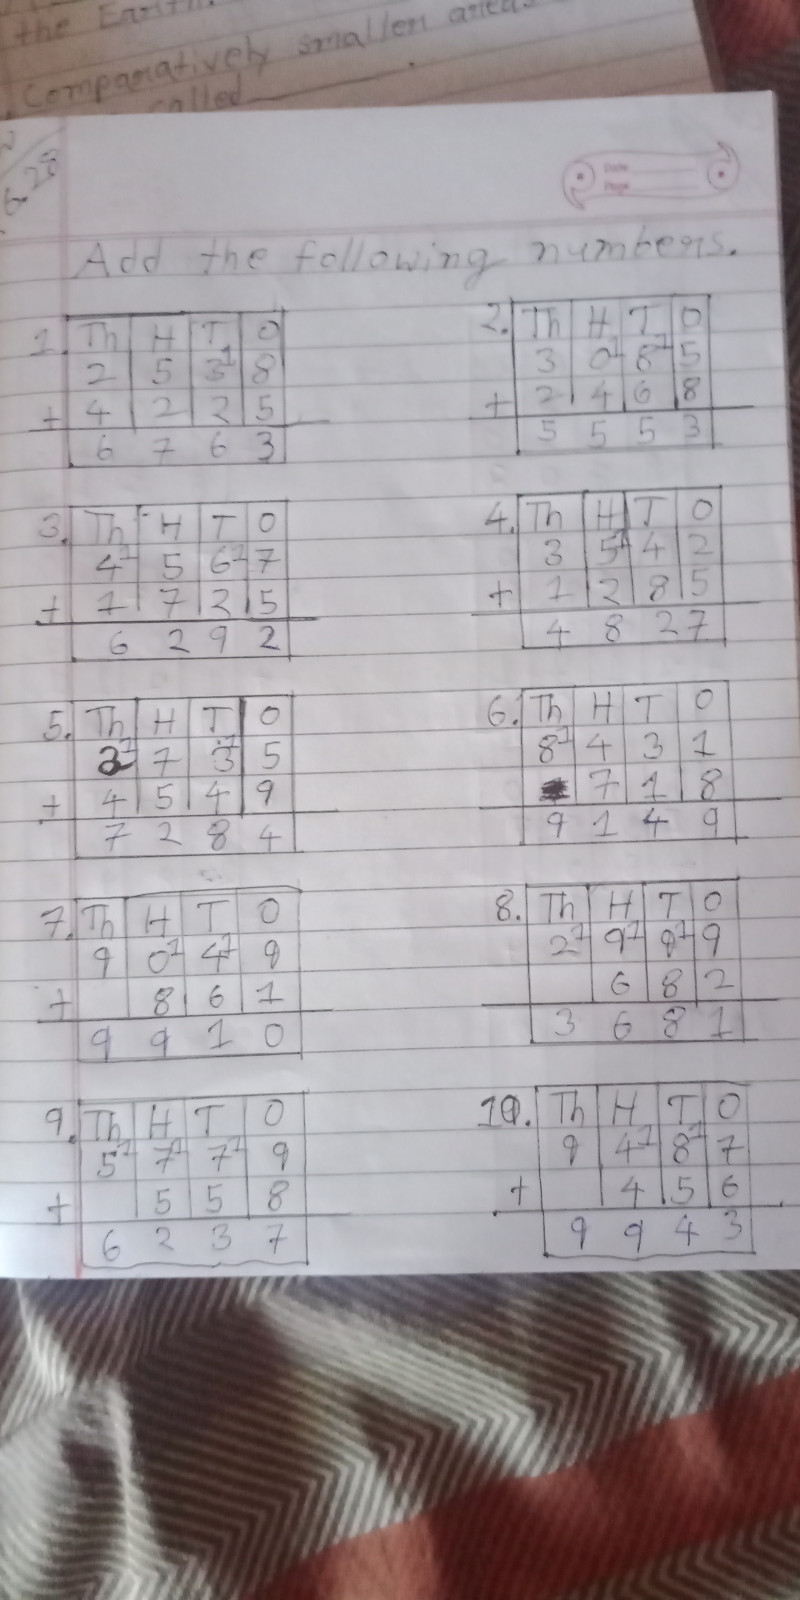 the Earth.
Comparatively smaller areas
called ______.
6.28
Date
Page
Add the following numbers.
1. Th H T O
2 5 3¹ 8
+ 4 2 2 5
6 7 6 3
2. Th H T O
3 0¹ 8¹ 5
+ 2 4 6 8
5 5 5 3
3. Th H T O
4¹ 5 6¹ 7
+ 1 7 2 5
6 2 9 2
4. Th H T O
3 5¹ 4 2
+ 1 2 8 5
4 8 2 7
5. Th H T O
2¹ 7 3¹ 5
+ 4 5 4 9
7 2 8 4
6. Th H T O
8¹ 4 3 1
7 1 8
9 1 4 9
7. Th H T O
9 0¹ 4¹ 9
+ 8 6 1
9 9 1 0
8. Th H T O
2¹ 9¹ 9¹ 9
6 8 2
3 6 8 1
9. Th H T O
5¹ 7¹ 7¹ 9
+ 5 5 8
6 2 3 7
10. Th H T O
9 4¹ 8¹ 7
+ 4 5 6
9 9 4 3